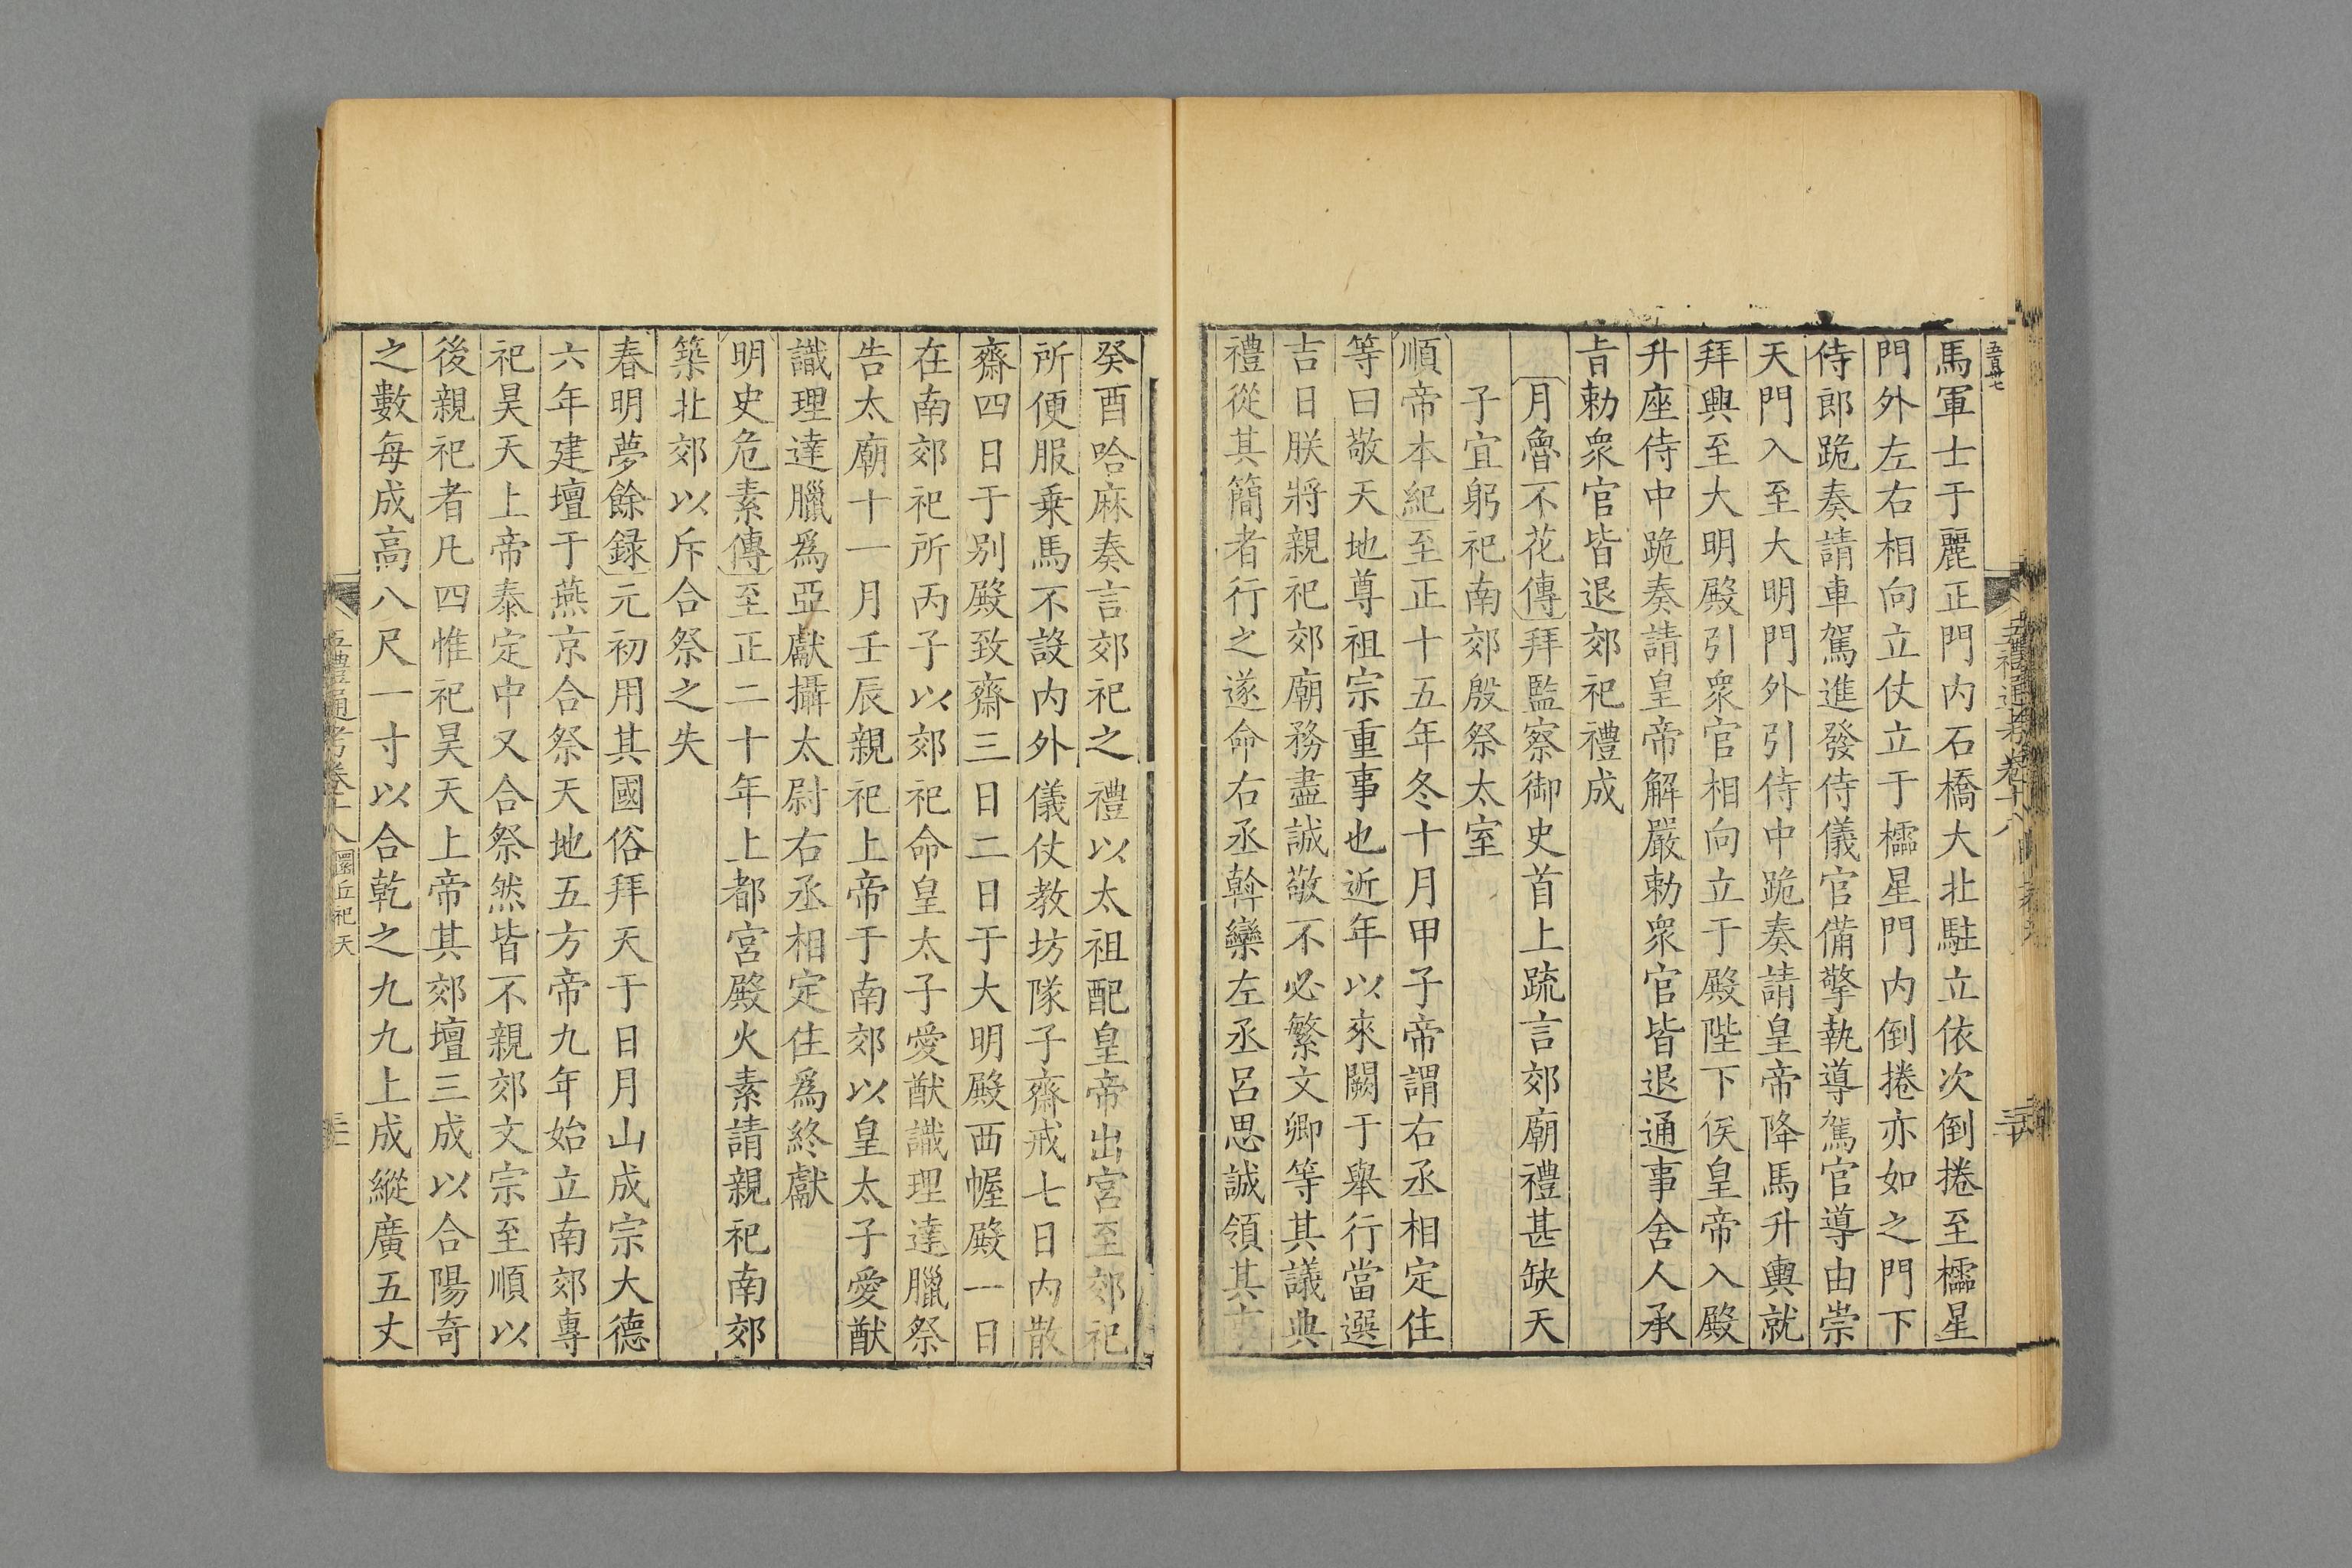 五百卅七
馬軍士于麗正門内石橋大北駐立依次倒捲至櫺星
門外左右相向立仗立于櫺星門内倒捲亦如之門下
侍郎跪奏請車駕進發侍儀官備擎執導駕官導由崇
天門入至大明門外引侍中跪奏請皇帝降馬升輿就
拜興至大明殿引衆官相向立于殿陛下俟皇帝入殿
升座侍中跪奏請皇帝解嚴勅衆官皆退通事舍人承
旨勅衆官皆退郊祀禮成
月魯不花傳拜監察御史首上疏言郊廟禮甚缺天
子宜躬祀南郊殷祭太室
順帝本紀至正十五年冬十月甲子帝謂右丞相定住
等曰敬天地尊祖宗重事也近年以來闕于舉行當選
吉日朕將親祀郊廟務盡誠敬不必繁文卿等其議典
禮從其簡者行之遂命右丞斡欒左丞呂思誠領其
癸酉哈麻奏言郊祀之禮以太祖配皇帝出宮至郊祀
所便服乗馬不設内外儀仗教坊隊子齋戒七日内散
齋四日于别殿致齋三日二日于大明殿西幄殿一日
在南郊祀所丙子以郊祀命皇太子愛猷識理達臘祭
告太廟十一月壬辰親祀上帝于南郊以皇太子愛猷
識理達臘爲亞獻攝太尉右丞相定住爲終獻
明史危素傳至正二十年上都宮殿火素請親祀南郊
築北郊以斥合祭之失
春明夢餘録元初用其國俗拜天于日月山成宗大德
六年建壇于燕京合祭天地五方帝九年始立南郊專
祀昊天上帝泰定中又合祭然皆不親郊文宗至順以
後親祀者凡四惟祀昊天上帝其郊壇三成以合陽奇
之數每成高八尺一寸以合乾之九九上成縱廣五丈
五禮通考卷十八 圜丘祀天